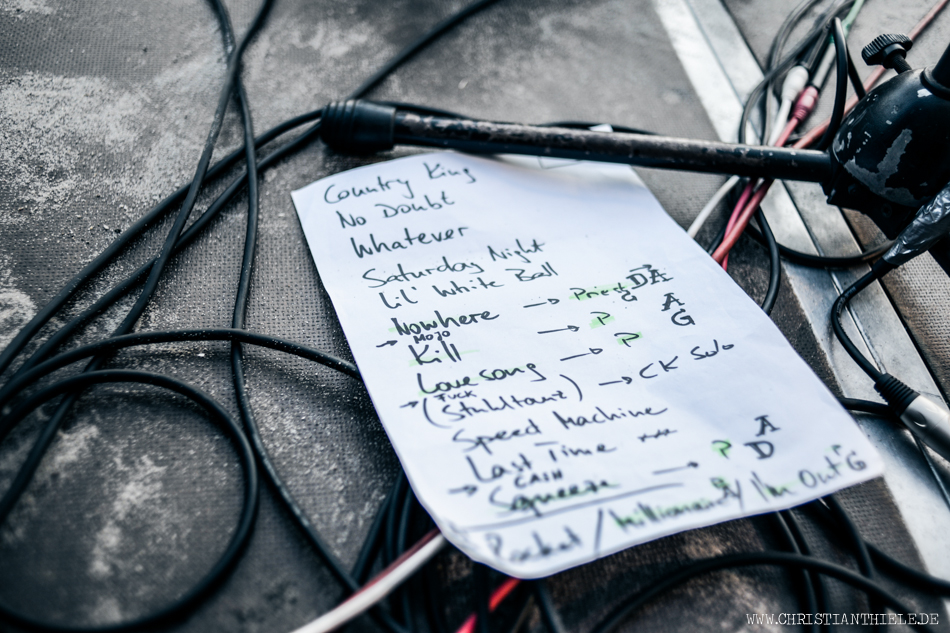 Country King
No Doubt
Whatever
Saturday Night
Lil' White Ball
Nowhere → Priest DA
G
→ MOJO
Kill → P A
G
Lovesong → P
→ FUCK
(Stuhltanz) → CK Solo
Speed Machine
Last Time
→ CAIN
Squeeze → P A
D
Rocket / Millionaire / I'm Out G
WWW.CHRISTIANTHIELE.DE